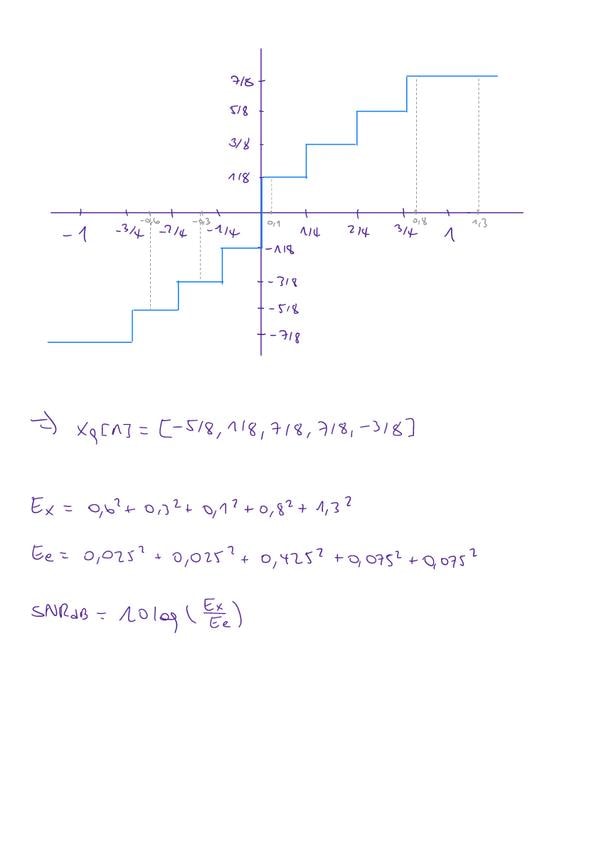 7/8
5/8
3/8
1/8
-0,6 -0,3 0,1 0,8 1,3
-1 -3/4 -2/4 -1/4 1/4 2/4 3/4 1
-1/8
-3/8
-5/8
-7/8
=> xq[n] = [-5/8, 1/8, 7/8, 7/8, -3/8]
Ex = 0,6² + 0,3² + 0,1² + 0,8² + 1,3²
Ee = 0,025² + 0,025² + 0,425² + 0,075² + 0,075²
SNRdB = 10 log (Ex/Ee)